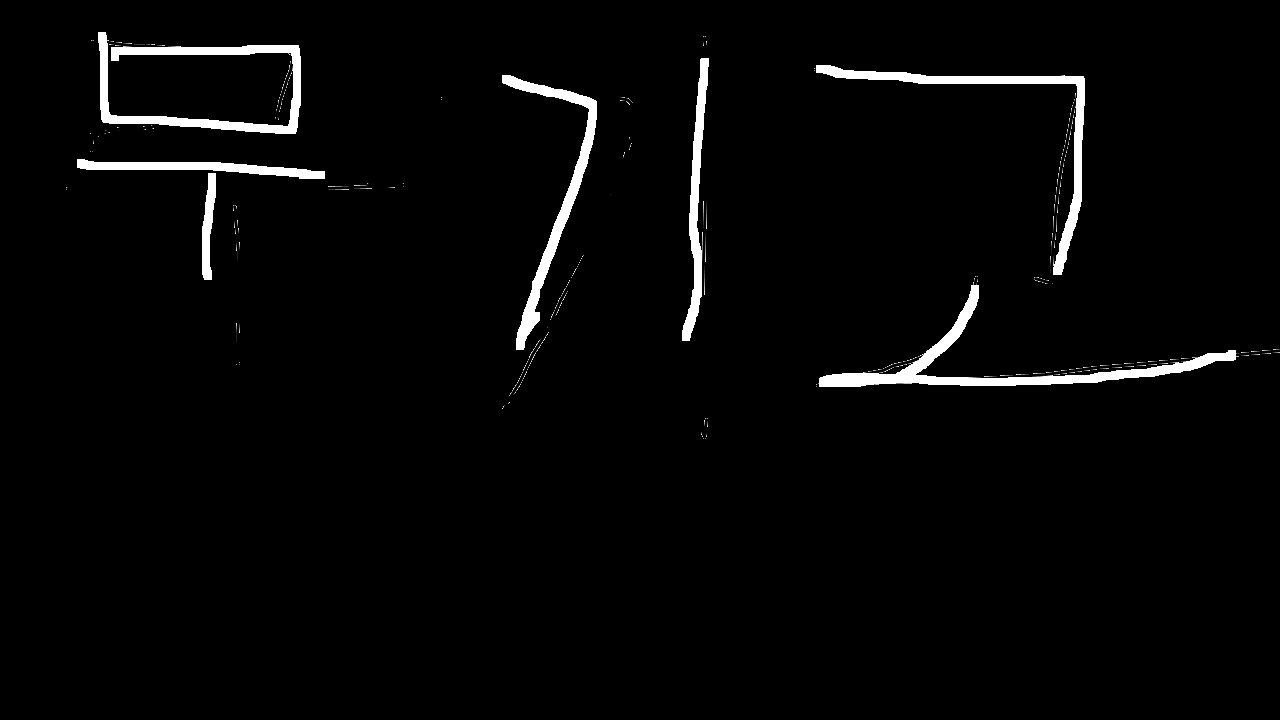 무기고